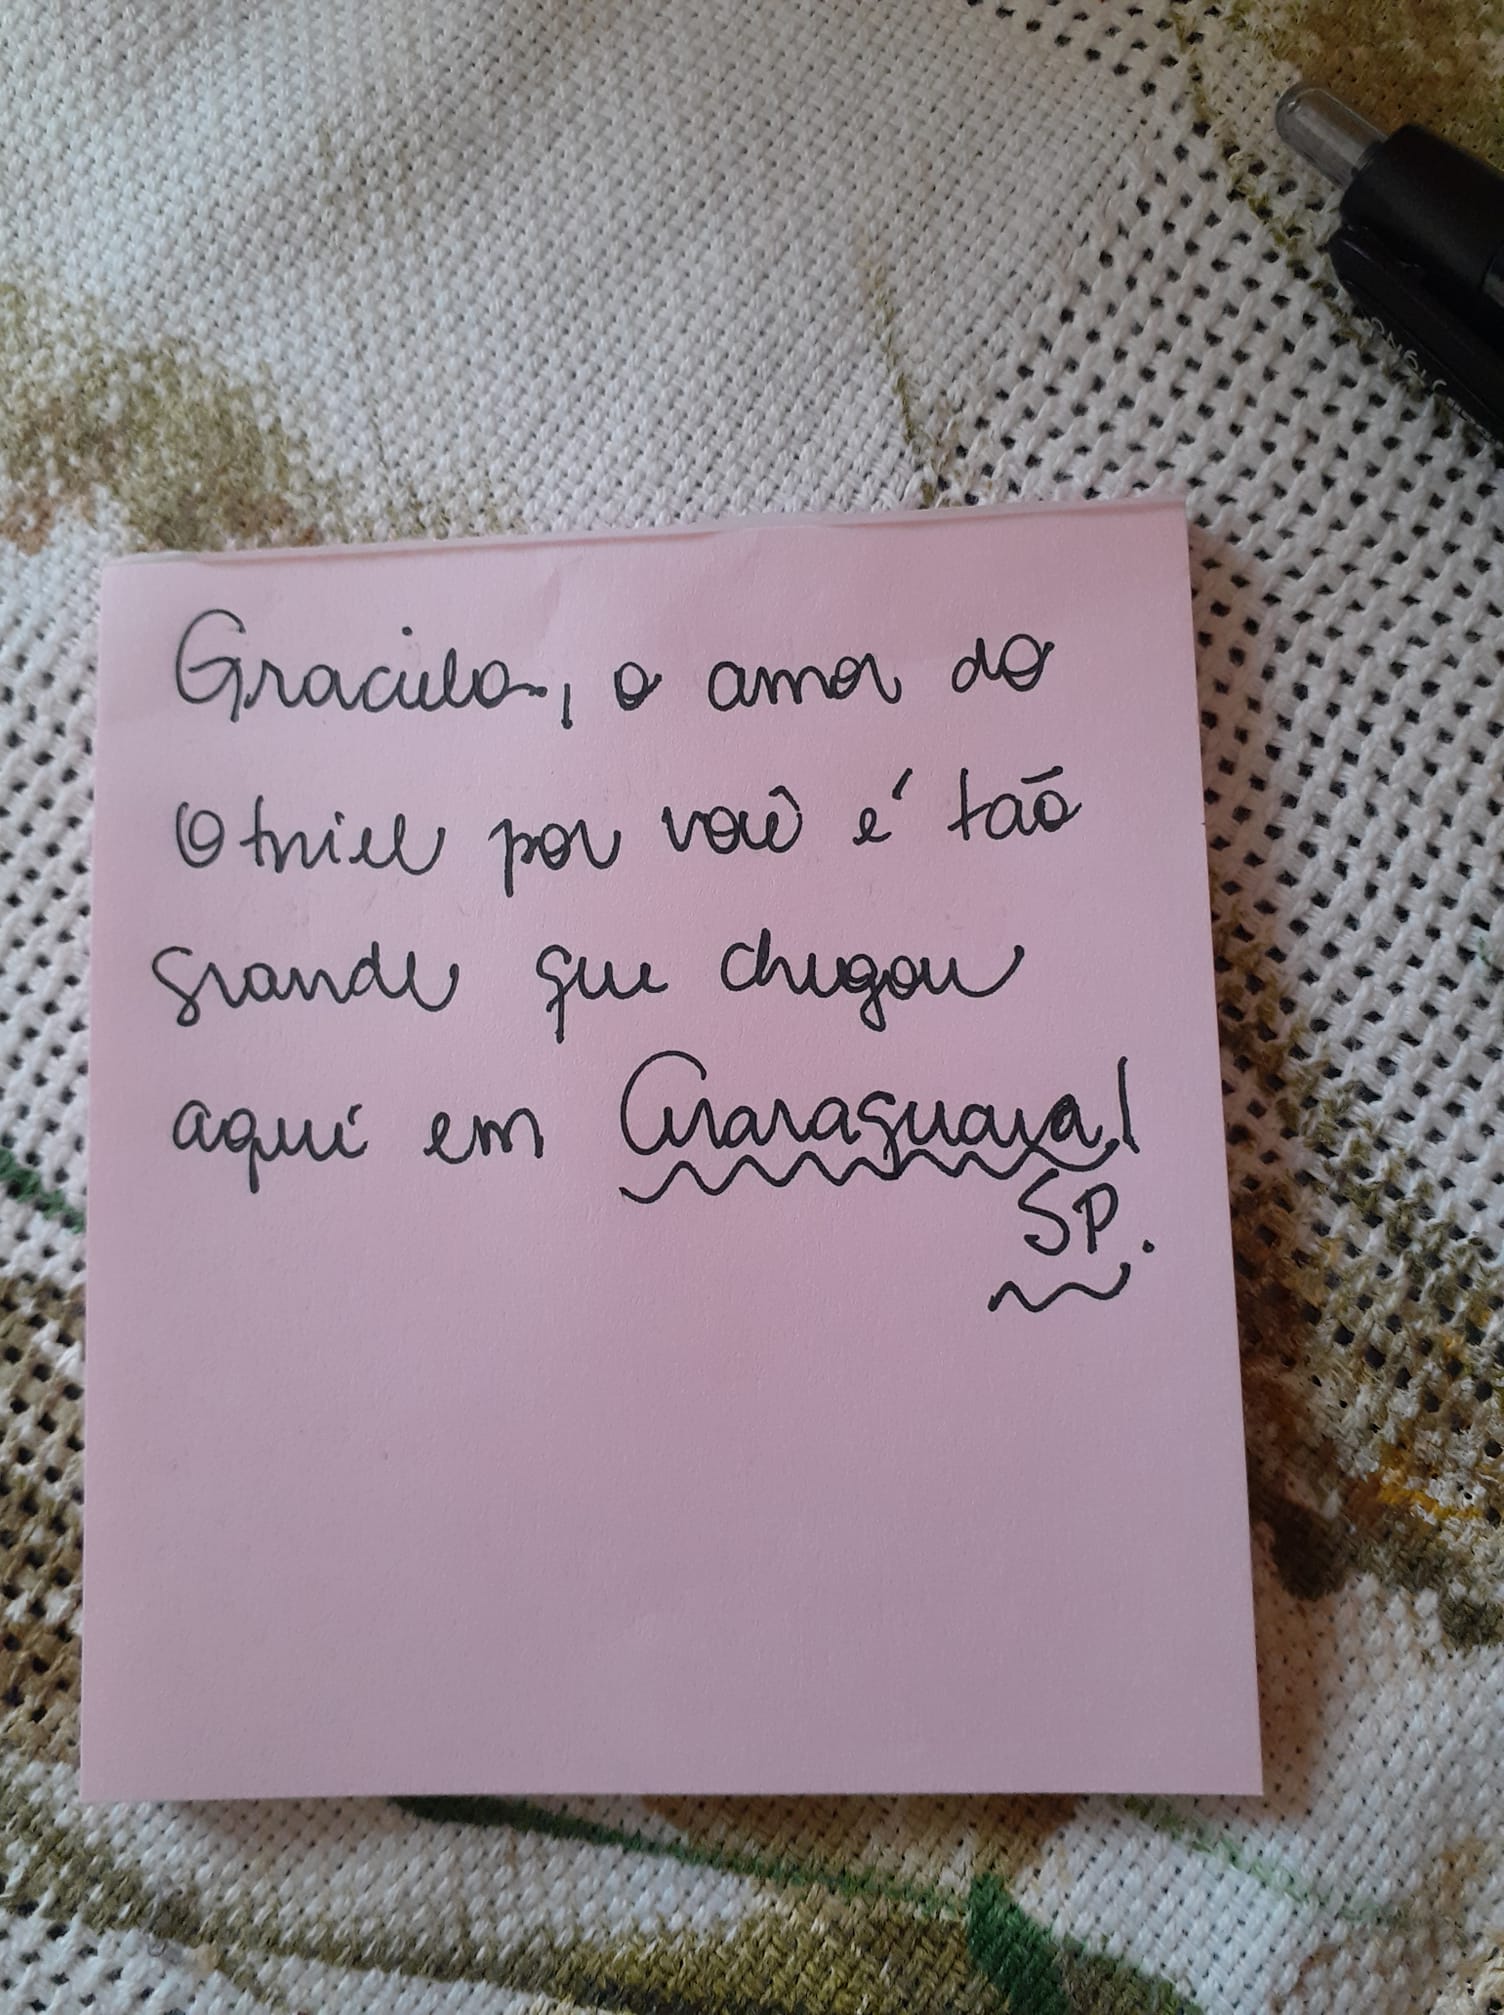 Graciela, o amor do
Otniel por você é tão
grande que chegou
aqui em Araraquara!
SP.